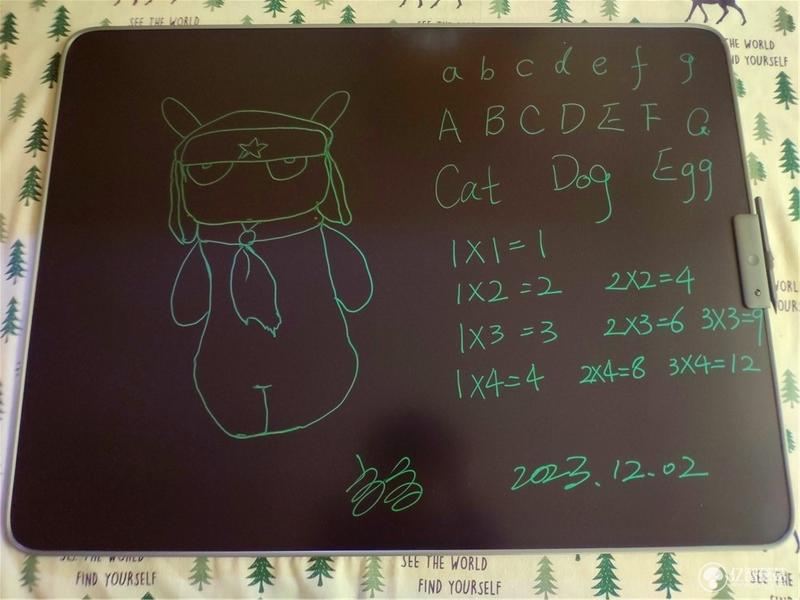 SEE THE WORLD
THE WORLD
FIND YOURSELF
a b c d e f g
A B C D E F G
Cat Dog Egg
1X1=1
1X2=2 2X2=4
1X3=3 2X3=6 3X3=9
1X4=4 2X4=8 3X4=12
2023.12.02
SEE THE WORLD
FIND YOURSELF
SEE THE WORLD
FIND YOURSELF
SEE THE WO
FIND YOURSELF